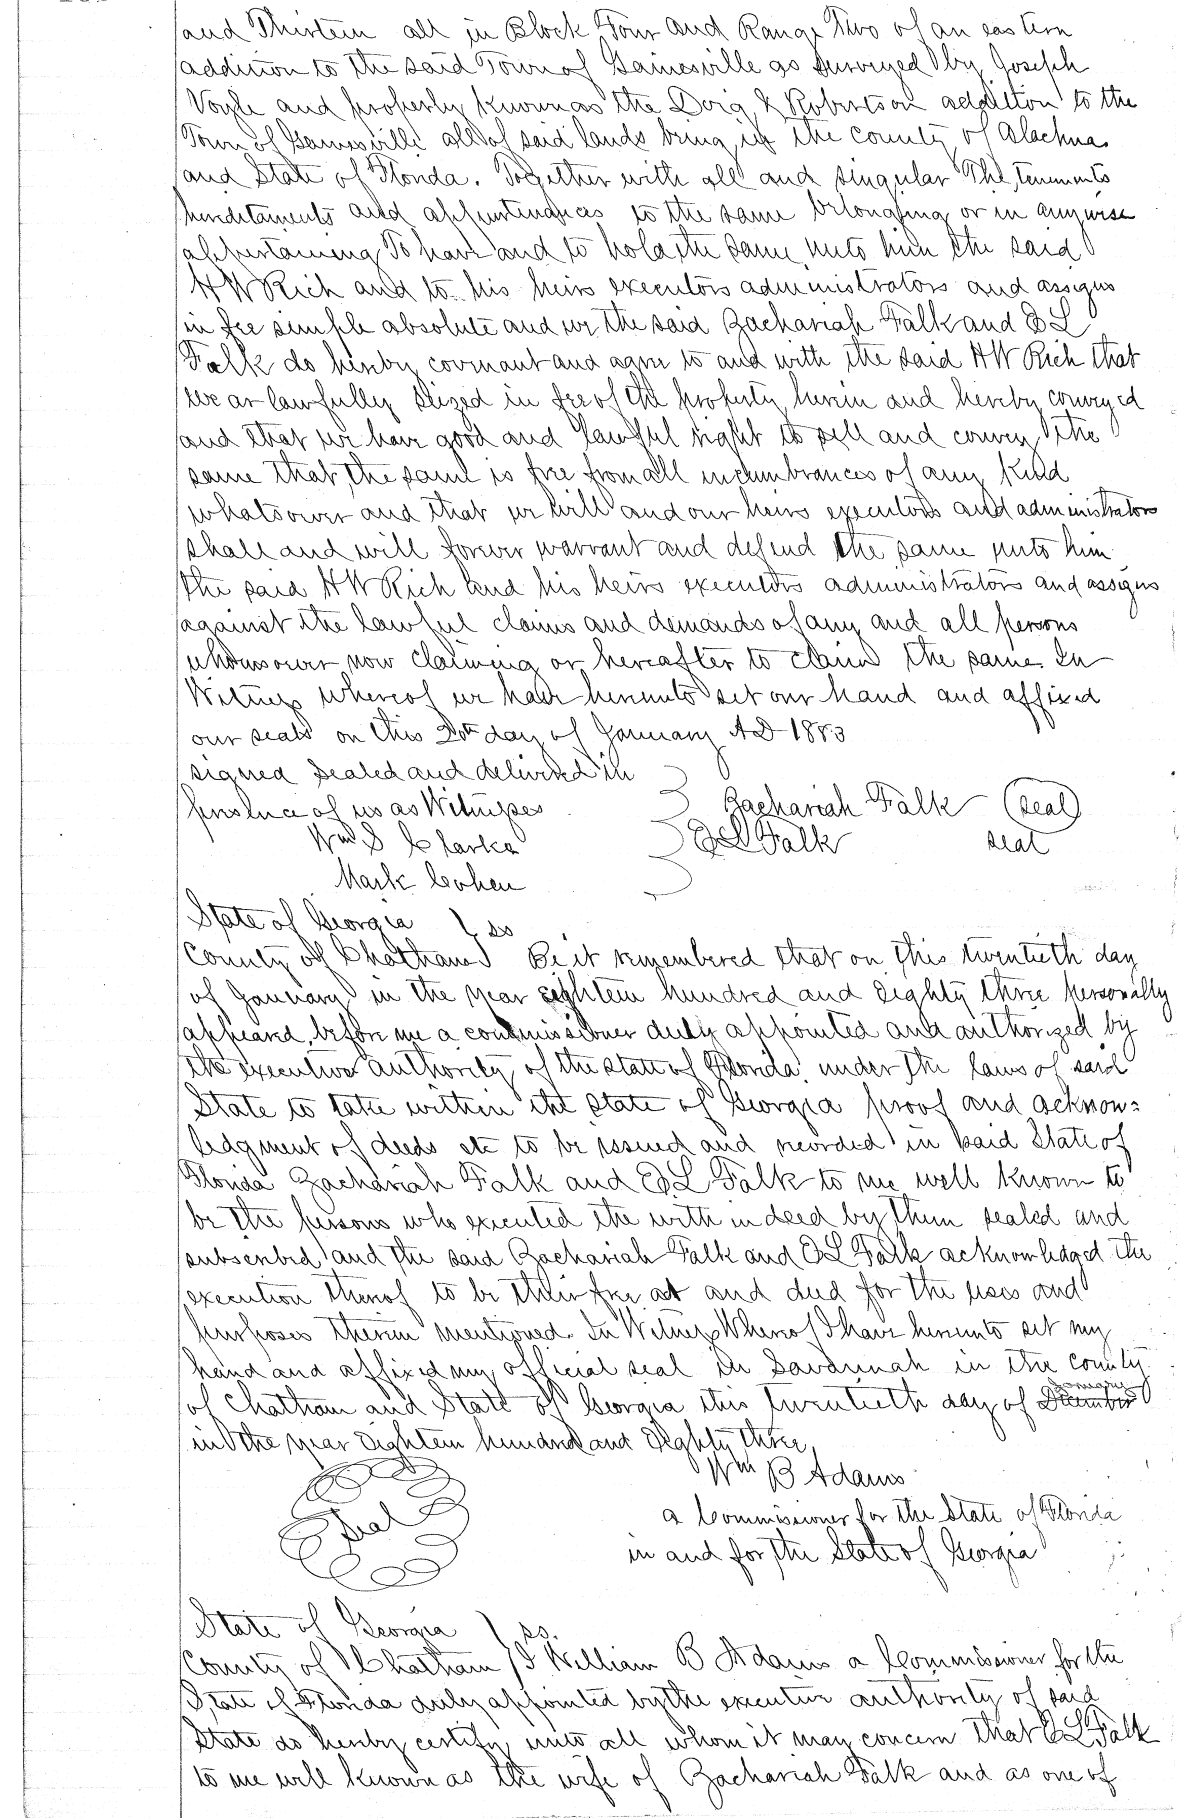 and Thirteen all in Block Four and Range Two of an eastern
addition to the said Town of Gainesville as surveyed by Joseph
Voyle and properly known as the Doig & Robertson addition to the
Town of Gainesville all of said lands being in the county of Alachua
and State of Florida. Together with all and singular The tenements
hereditaments and appurtenances to the same belonging or in anywise
appertaining To have and to hold the same unto him the said
H W Rich and to his heirs executors administrators and assigns
in fee simple absolute and we the said Zachariah Falk and E L
Falk do hereby covenant and agree to and with the said H W Rich that
we ar lawfully seized in fee of the property herein and hereby conveyed
and that we have good and lawful right to sell and convey the
same that the same is free from all incumbrances of any kind
whatsoever and that we will and our heirs executors and administrators
shall and will forever warrant and defend the same unto him
the said H W Rich and his heirs executors administrators and assigns
against the lawful claims and demands of any and all persons
whomsoever now claiming or hereafter to claim the same. In
Witness whereof we have hereunto set our hand and affixed
our seals on this 20th day of January A D 1883
signed sealed and delivered in
presence of us as Witnesses Zachariah Falk seal
Wm S Clarke E L Falk seal
Mark Cohen
State of Georgia } ss
County of Chatham } Be it remembered that on this twentieth day
of January in the year eighteen hundred and Eighty three personally
appeared before me a commissioner duly appointed and authorized by
the executive authority of the state of Florida under the laws of said
State to take within the state of Georgia proof and acknow=
ledgment of deeds etc to be issued and recorded in said State of
Florida Zachariah Falk and E L Falk to me well known to
be the persons who executed the with in deed by them sealed and
subscribed and the said Zachariah Falk and E L Falk acknowledged the
execution thereof to be their free act and deed for the uses and
purposes therein mentioned. In Witness Whereof I have hereunto set my
hand and affixed my official seal in Savannah in the county
of Chatham and State of Georgia this twentieth day of December January
in the year Eighteen hundred and Eighty three
Wm B Adams
Seal
a Commissioner for the State of Florida
in and for the State of Georgia
State of Georgia } ss.
County of Chatham } I William B Adams a Commissioner for the
State of Florida duly appointed by the executive authority of said
State do hereby certify unto all whom it may concern that E L Falk
to me well known as the wife of Zachariah Falk and as one of